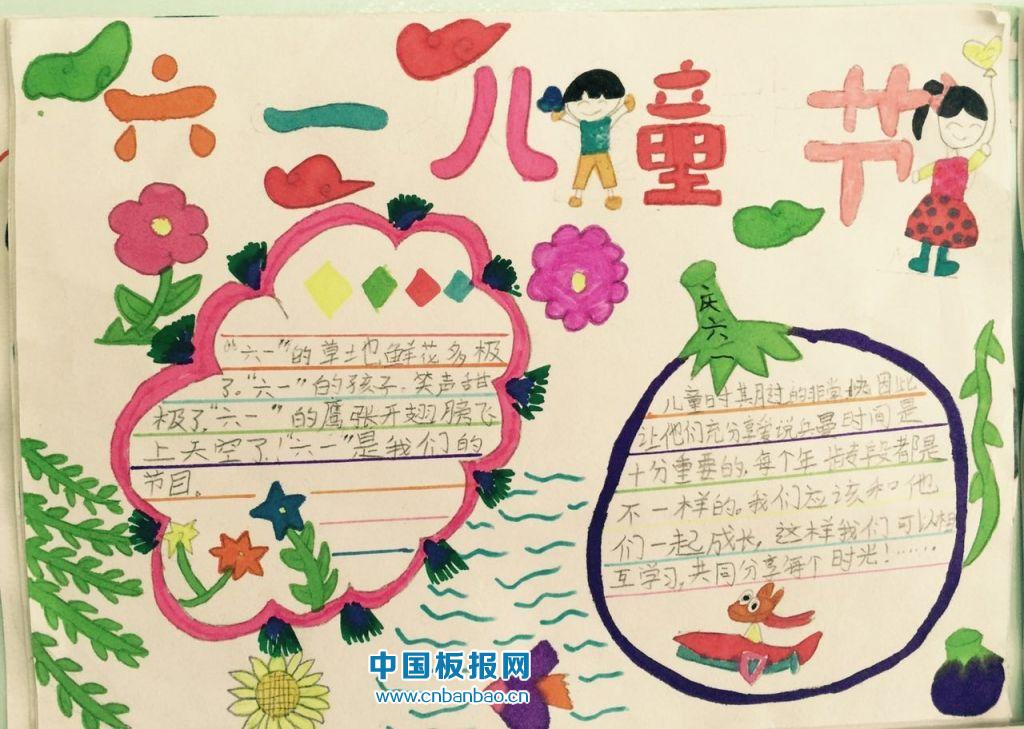 六一儿童节
"六一"的草地鲜花多极
了。"六一"的孩子.笑声甜
极了,"六一"的鹰张开翅膀飞
上天空了!"六一"是我们的
节目。
庆六一
儿童时其月过的非常快因此
让他们充分享爱说与曼时间是
十分重要的,每个年 段都是
不一样的。我们应该和他
们一起成长,这样我们可以相
互学习,共同分享每个时光!……
中国板报网
www.cnbanbao.cn